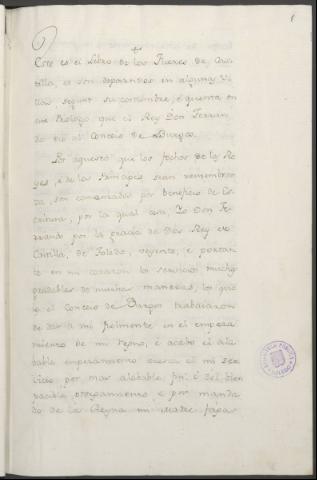 1
Este es el Libro de los Fueros de Cas-
tilla, e son departidos en algunas Vi-
llas, segunt su costumbre, e quenta en
este Prologo que el Rey Don Ferran-
do dio al Concejo de Burgos.
Por aquesto que los fechos de los Re-
yes, e de los Principes sean remembra-
da, son comendados por beneficio de Es-
criptura, por la qual cosa, Yo Don Fe-
rrando por la gracia de Dios Rey de
Castilla, de Toledo, veyente, e portan-
te en mi corazon los servicios mucho
gradables de muchas maneras, los que
a el Concejo de Burgos trabaiaron
de dar a mi fielmente en el empeza-
miento de mi regno, e acabo el ala-
dable empezamiento acerca el mi ser-
vicio por mas alabable fin, e del bien
, e por manda-
do de la Reyna mi Madre